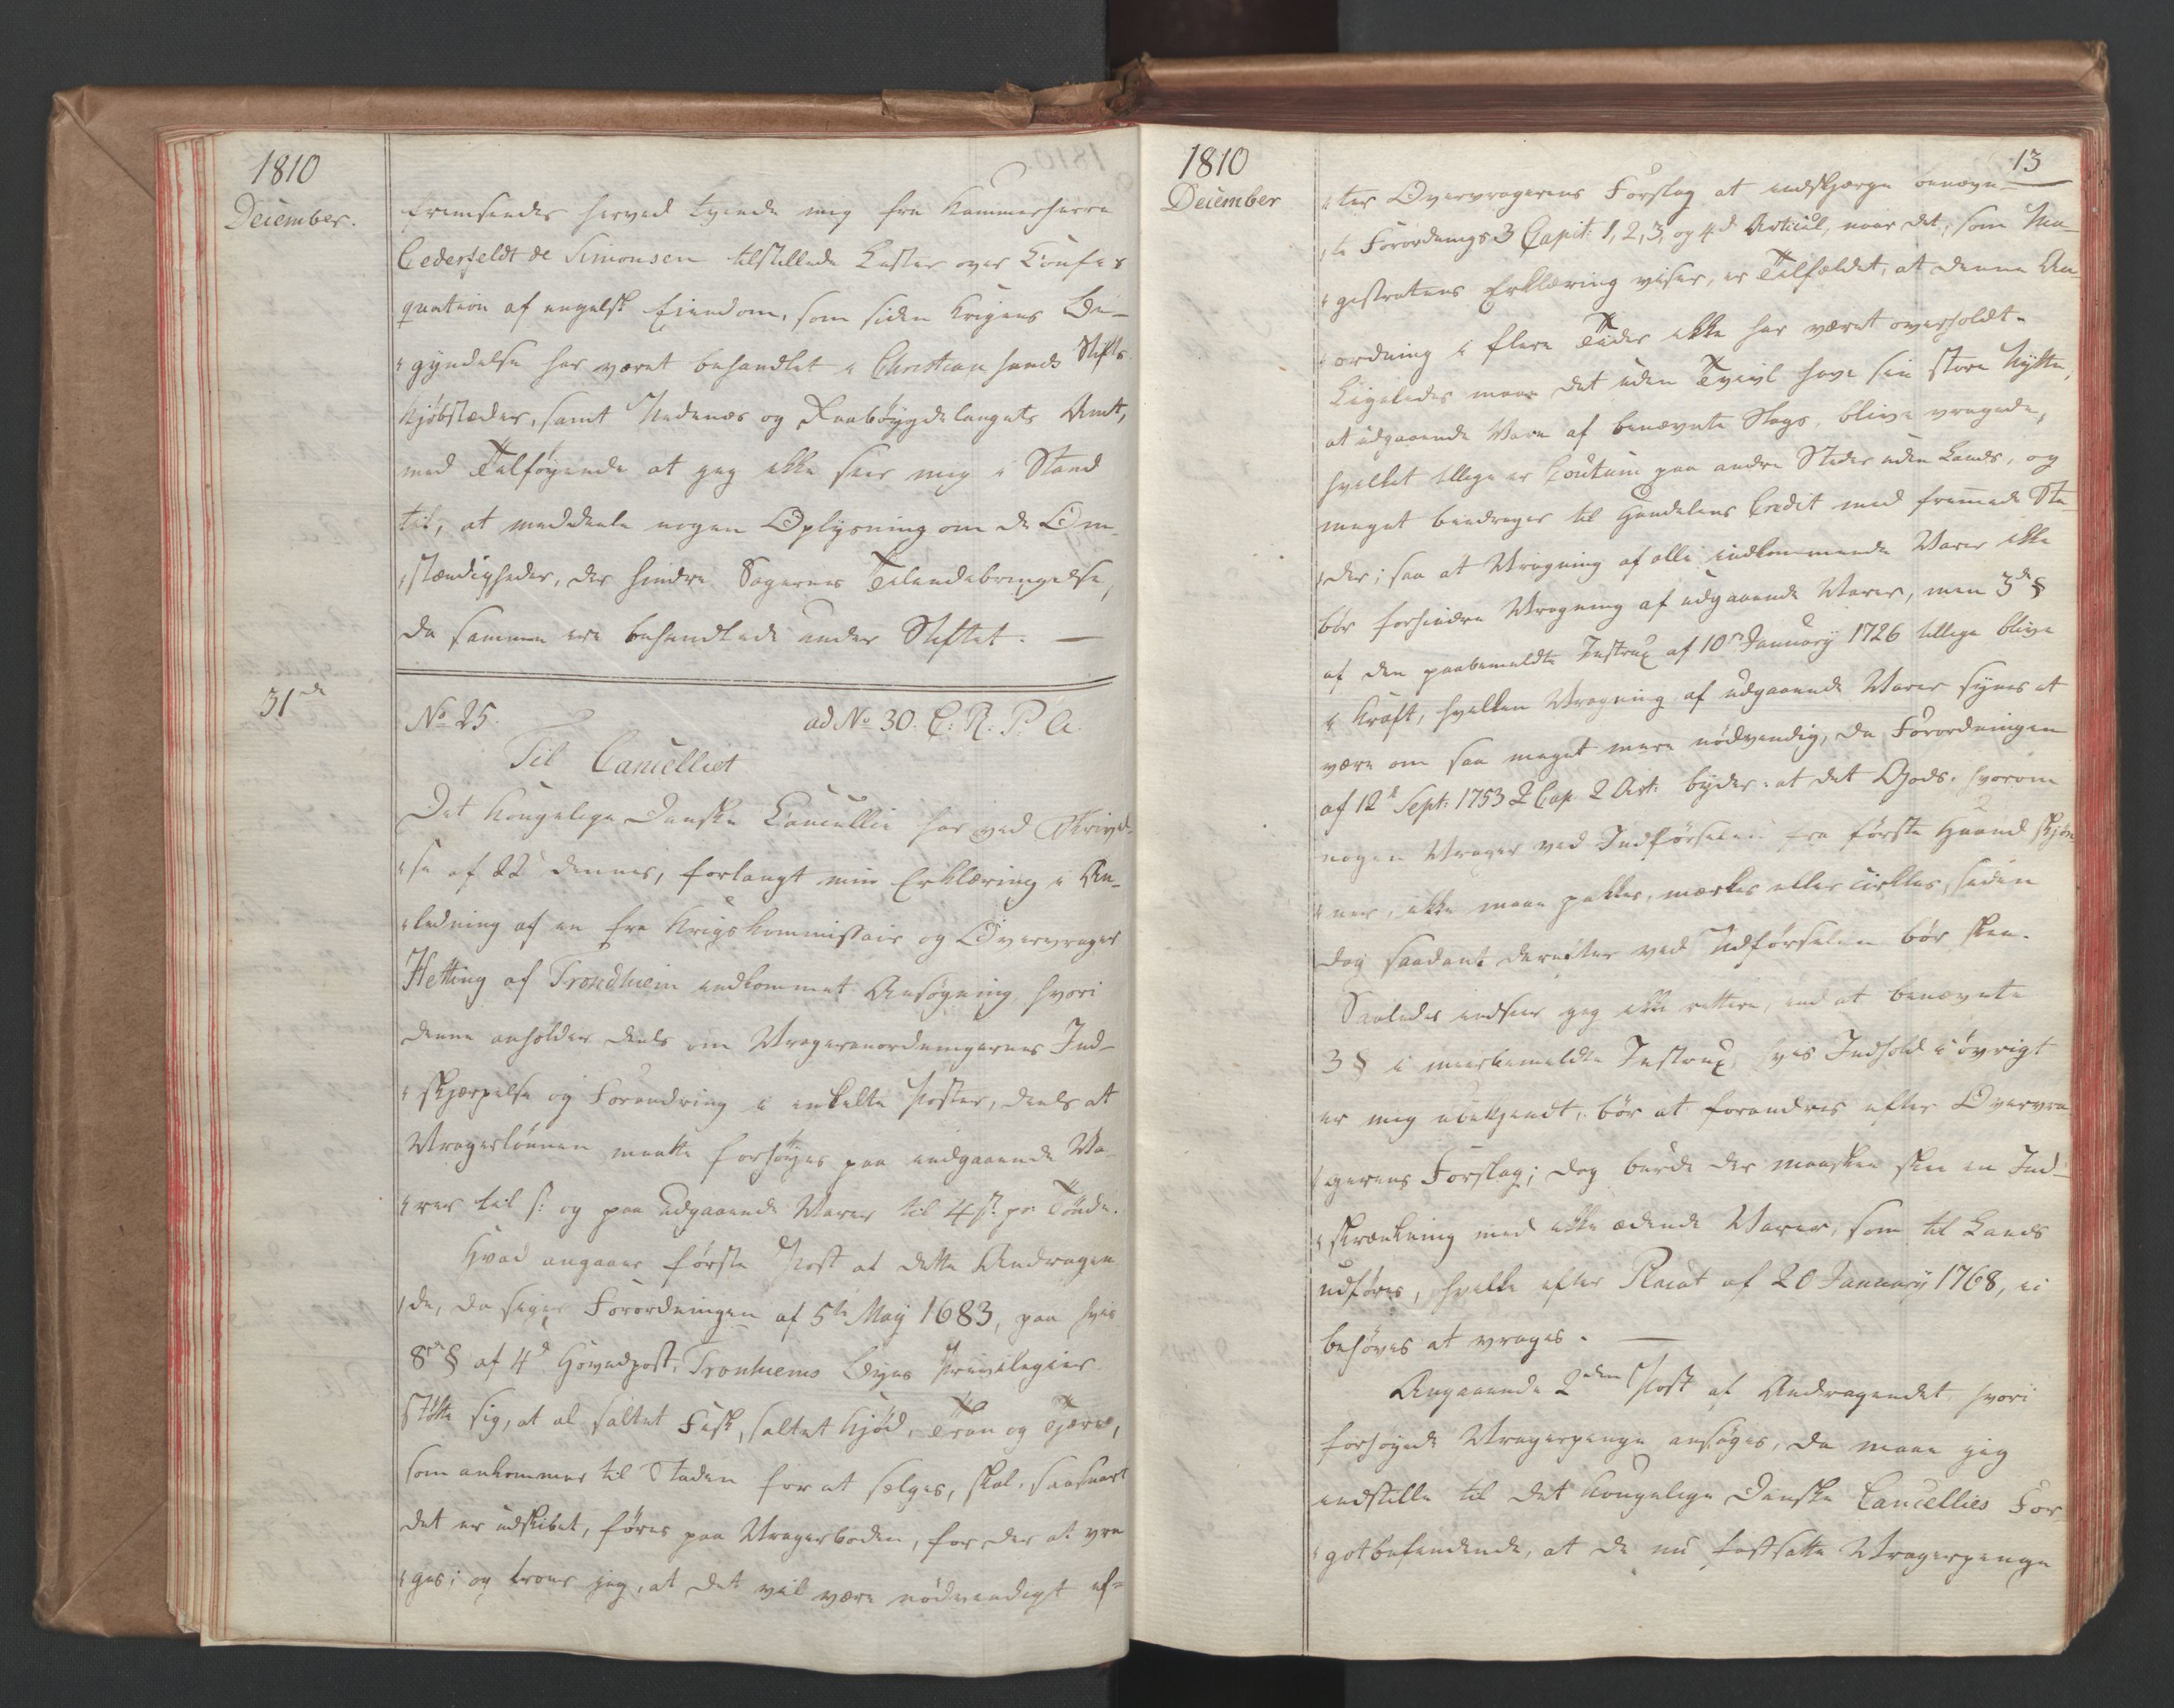 1810
December.
fremsendes herved tvende mig fra Kammerherre
Cederfeldt de Simonsen tilstillede Lister over Confis
quation af engelsk Eiendom, som siden Krigens Be-
gyndelse har været behandlet i Christiansands Stifts
Kjøbstæder, samt Nedenæs og Raabøygdelaugets Amt,
med Tilføyende at jeg ikke seer mig i Stand
til, at meddeele nogen Oplysning om de Om-
stændigheder, der hindre Sagernes Tilendebringelse,
da samme ere behandlede under Stiftet. —
31de
No 25. ad No 30. C: R. P. A.
Til Cancelliet
Det Kongelige Danske Cancellie har ved Skrivel-
se af 22 dennes, forlangt min Erklæring i An-
ledning af en fra Krigskommissair og Overvrager
Hetting af Trondhiem indkommet Ansøgning, hvori
denne anholder deels om Vrageranordningernes Ind-
skjærpelse og Forandring i enkelte Poster, deels at
Vragerlønnen maatte forhøyes paa indgaaende Va-
rer til ſ: og paa udgaaende Varer til 4 ſ. pr Tønde.
Hvad angaaer første Post af dette Andragen
de, da siger Forordningen af 5te May 1683, paa hvis
8de § af 4d Hovedpost, Tronhiems Byes Privilegier
støtte sig, at al saltet Fisk, saltet Kjød, Tran og Tjære,
som ankommer til Staden for at sælges, skal, saasnart
det er udskibet, føres paa Vragerboden, for der at vra
ges; og troer jeg, at det vil være nødvendigt ef=
1810
December
13
ter Overvragerens Forslag at indskjærpe benævn-
te Forordnings 3 Capit: 1, 2, 3, og 4d Articul, naar det, som Ma-
gistratens Erklæring viser, er Tilfældet, at denne An-
ordning i flere Tider ikke har været overholdt.
Ligeledes maae det uden Tvivl have sin store Nytte,
at udgaaende Vare af benævnte Slags, blive vragede,
hvilket tillige er Coutum paa andre Steder uden Lands, og
meget bidrager til Handelens Credit med fremede Ste
der; saa at Vragning af alle indkommende Varer ikke
bør forhindre Vragning af udgaaende Varer, men 3de §
af den paabemeldte Instrux af 10de January 1726 tillige blive
i Kraft, hvilken Vragning af udgaaende Varer synes at
være om saa meget mere nødvendig, da Forordningen
af 12te Sept: 1753 2 Cap 2 Art. byder: at det Gods, hvorom
nogen Vrager ved Indførselen fra første Haand skjøn-
ner, ikke maae pakkes, mærkes eller cirkles, siden
dog saadant derefter ved Udførselen bør skee.
Saaledes indseer jeg ikke rettere, end at benævnte
3 § i meerbemeldte Instrux, hvis Indhold i øvrigt
er mig ubekjendt, bør at forandres efter Overvra
gerens Forslag; dog burde der maaskee skee en Ind-
skrænkning med ikke ædende Varer, som til Lands
udføres, hvilke efter Placat af 20 January 1768, ei
behøves at vrages. —
Angaaende 2den Post af Andragendet, hvori
forhøyede Vragerpenge ansøges, da maae jeg
indstille til det Kongelige Danske Cancellies For
gotbefindende, at de nu fastsatte Vragerpenge